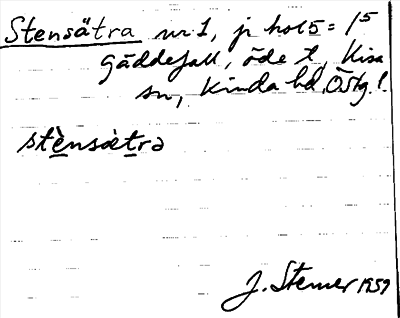 Stensätra nr 1, jr hos 5 = 1⁵
Gäddefall, öde t, Kisa
sn, Kinda hd Östg. l.
stènsàtrə
J. Sterner 1959